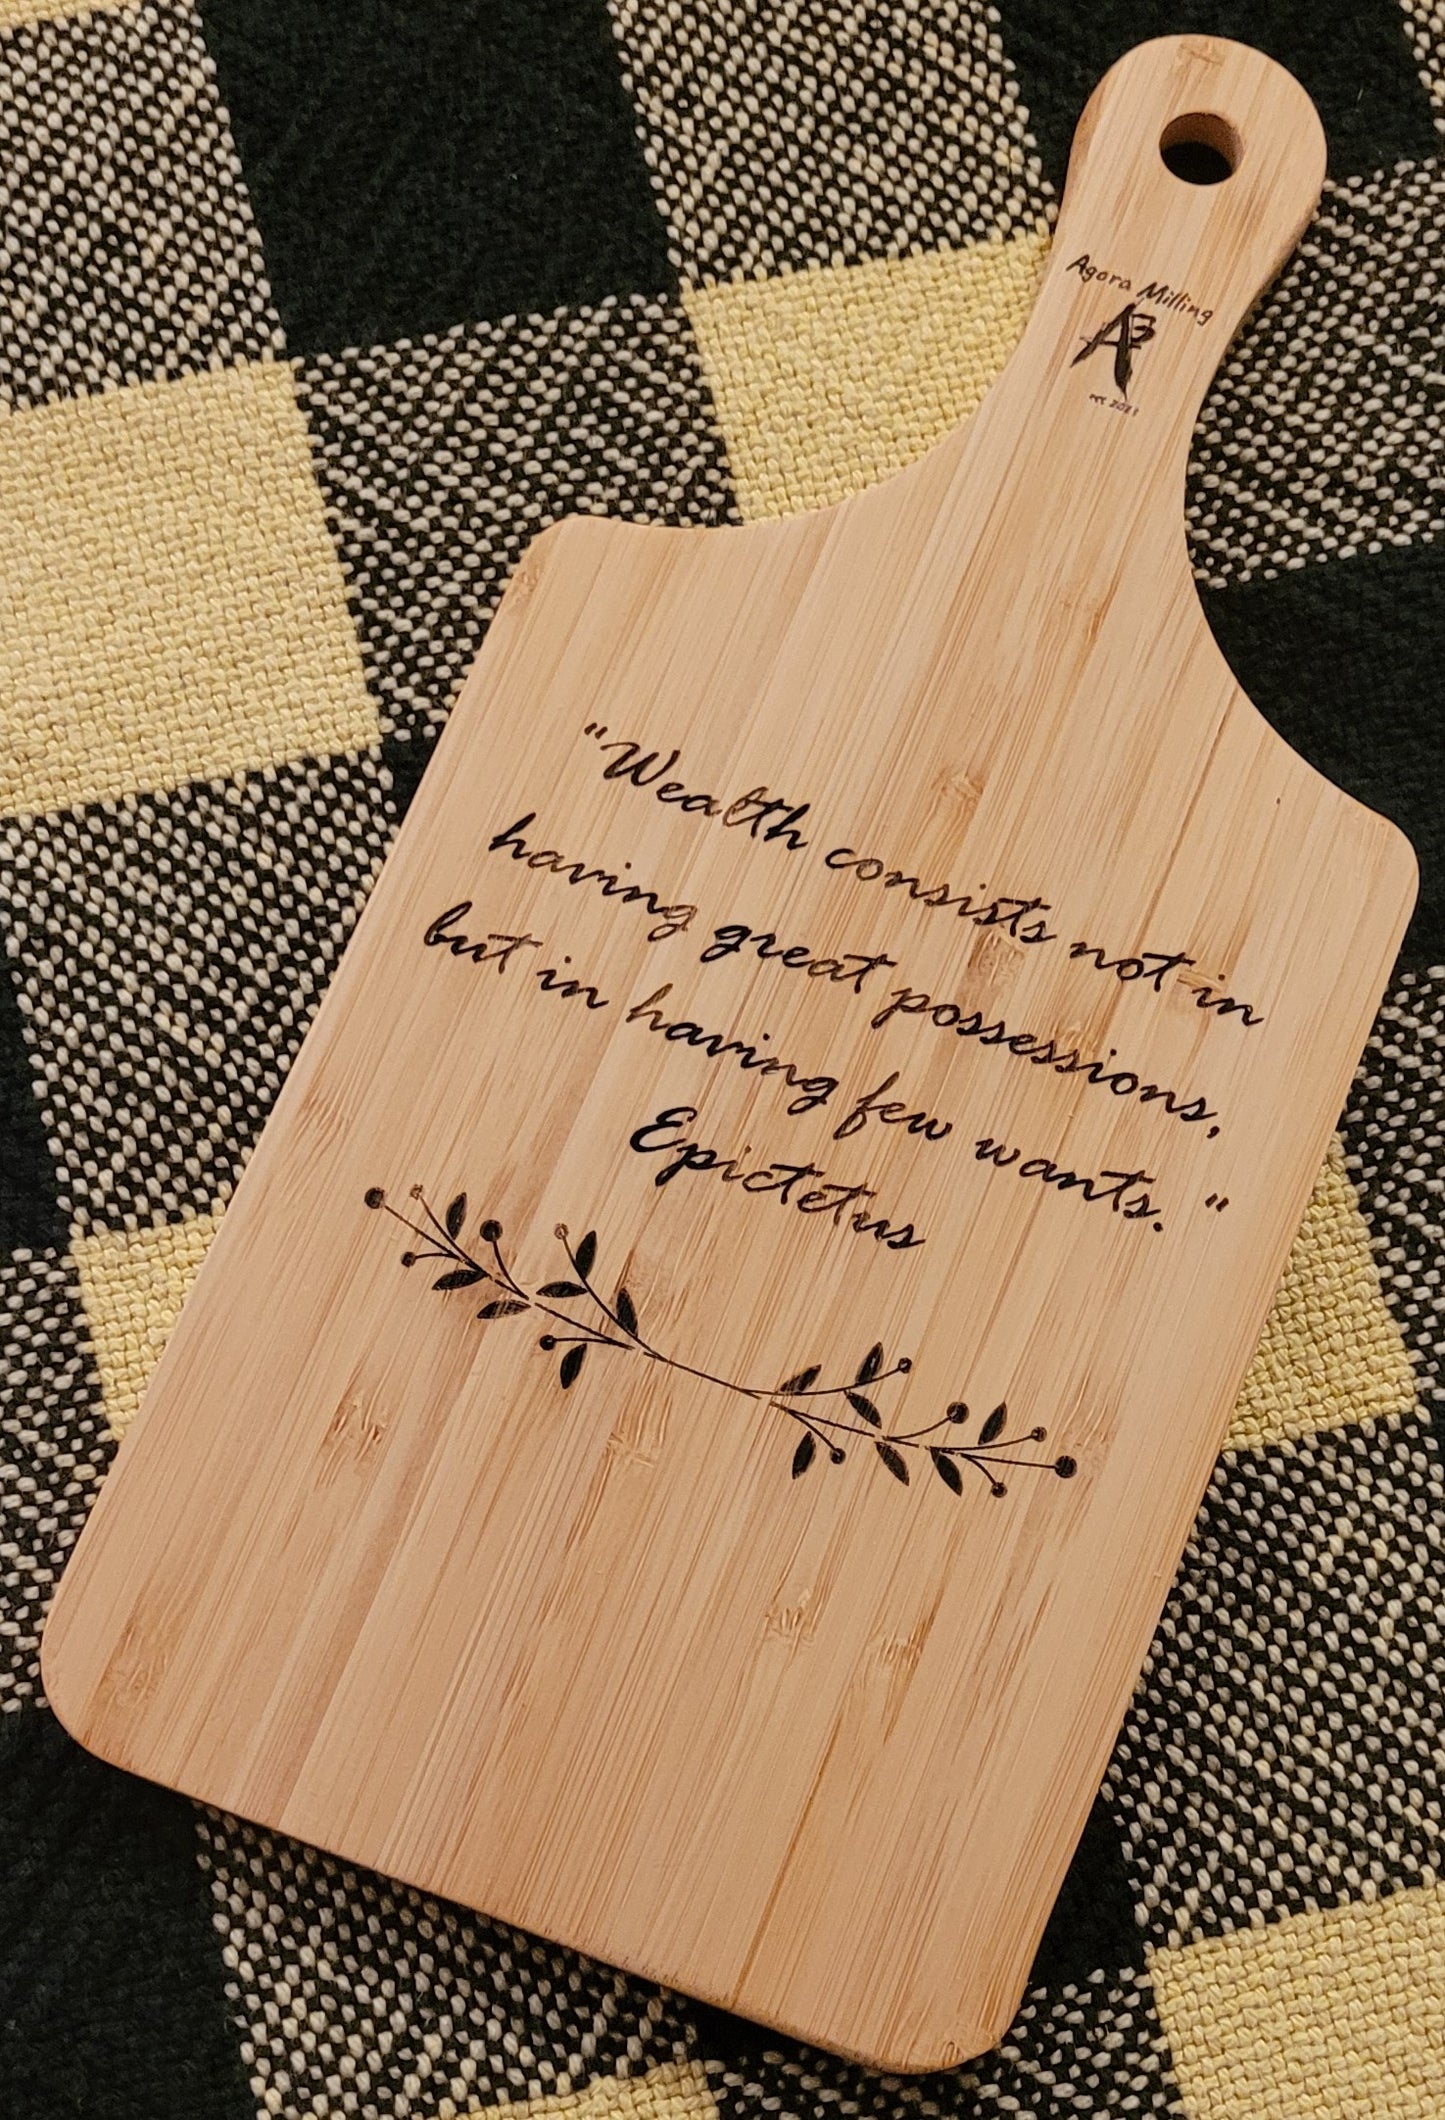 Agora Milling
"Wealth consists not in
having great possessions,
but in having few wants."
Epictetus